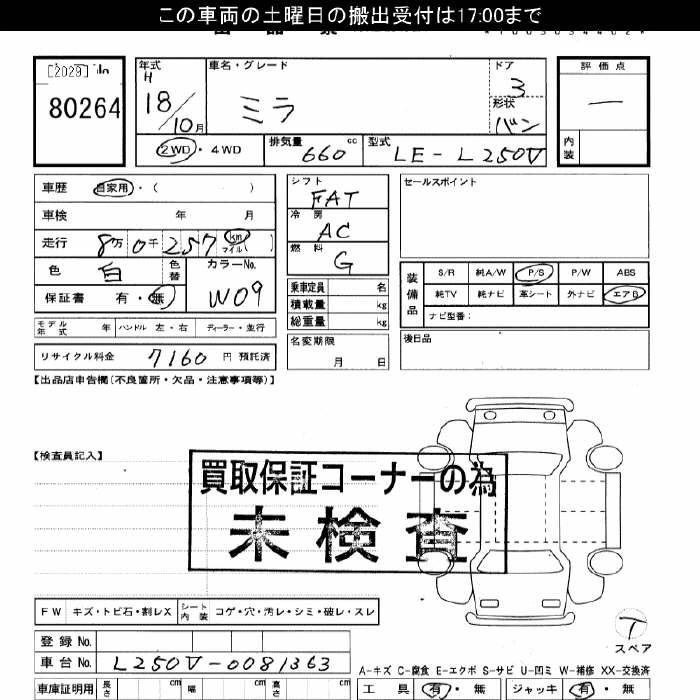 この車両の土曜日の搬出受付は17:00まで
[2029] No
80264
年式 H 18/10月
車名・グレード ミラ
ドア 3
形状 バン
評価点 —
内装
2WD・4WD
排気量 660 cc
型式 LE-L250V
車歴 自家用・( )
車検 年 月
走行 8万 0千 257 km マイル ( )
色 白 色替
カラーNo. W09
保証書 有・無
モデル年式 年 ハンドル 左・右 ディーラー・並行
リサイクル料金 7160 円 預託済
シフト FAT
冷房 AC
燃料 G
乗車定員 名
積載量 kg
総重量 kg
名変期限 月 日
セールスポイント
装備品
S/R 純A/W P/S P/W ABS
純TV 純ナビ 革シート 外ナビ エアB
ナビ型番:
後日品
【出品店申告欄(不良箇所・欠品・注意事項等)】
【検査員記入】
買取保証コーナーの為
未検査
FW キズ・トビ石・割レX シート内装 コゲ・穴・汚レ・シミ・破レ・スレ
登録No.
車台No. L250V-0081363
車庫証明用 長さ cm 幅 cm 高さ cm
T
スペア
A-キズ C-腐食 E-エクボ S-サビ U-凹ミ W-補修 XX-交換済
工具 有・無 ジャッキ 有・無